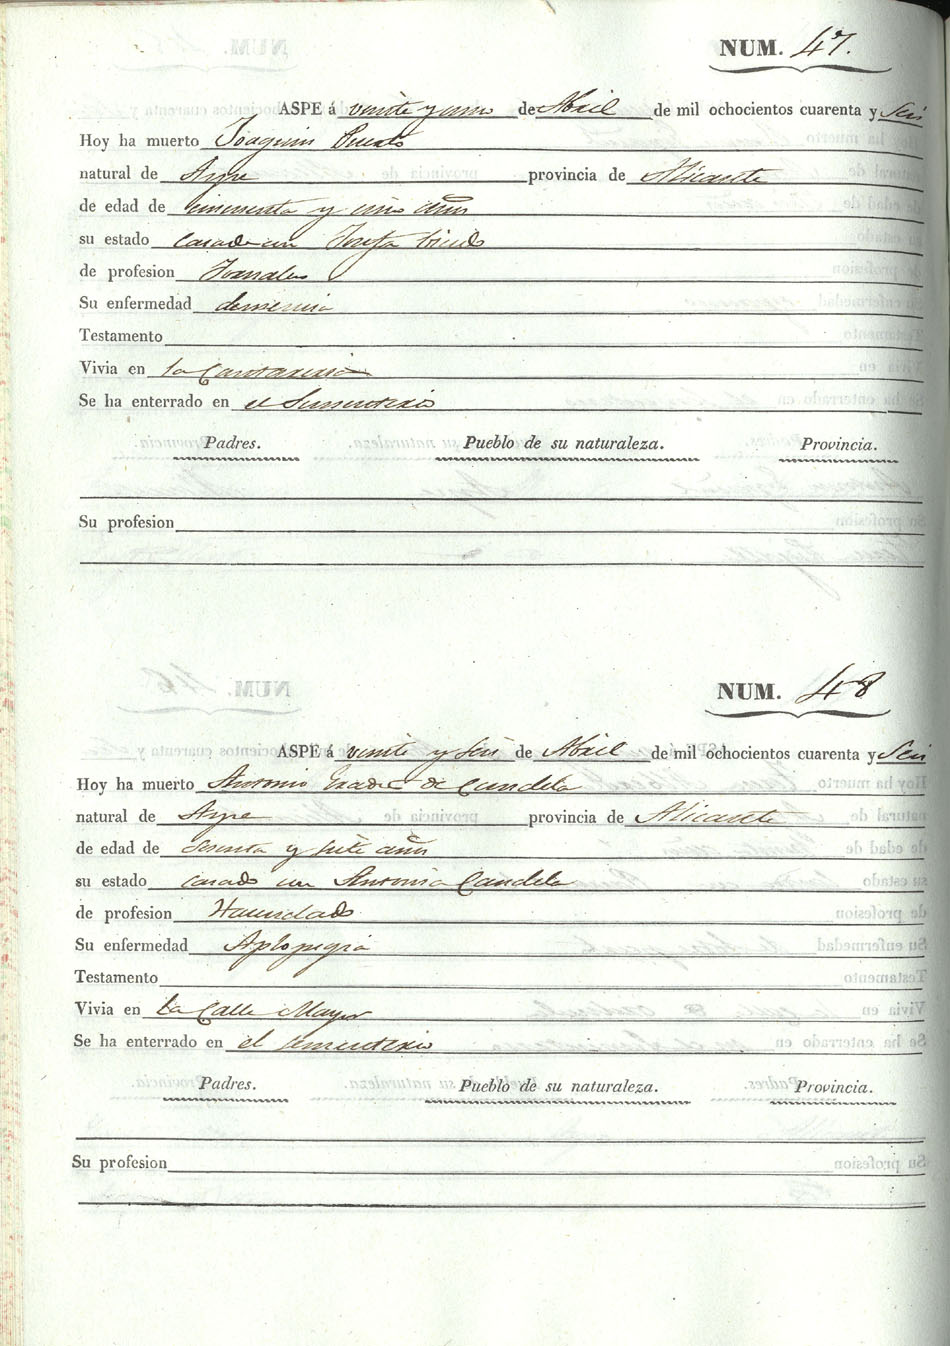 NUM. 47.
ASPE á veinte y uno de Abril de mil ochocientos cuarenta y Seis
Hoy ha muerto Joaquin Puerto
natural de Aspe provincia de Alicante
de edad de cincuenta y uno años
su estado casado con Josefa
de profesion Jornalero
Su enfermedad demencia
Testamento
Vivia en la
Se ha enterrado en el Sementerio
Padres. Pueblo de su naturaleza. Provincia.
Su profesion
NUM. 48
ASPE á veinte y Seis de Abril de mil ochocientos cuarenta y Seis
Hoy ha muerto Antonio de Candela
natural de Aspe provincia de Alicante
de edad de sesenta y siete años
su estado casado con Antonia Candela
de profesion Hacendado
Su enfermedad Aplopegia
Testamento
Vivia en la Calle Mayor
Se ha enterrado en el Sementerio
Padres. Pueblo de su naturaleza. Provincia.
Su profesion